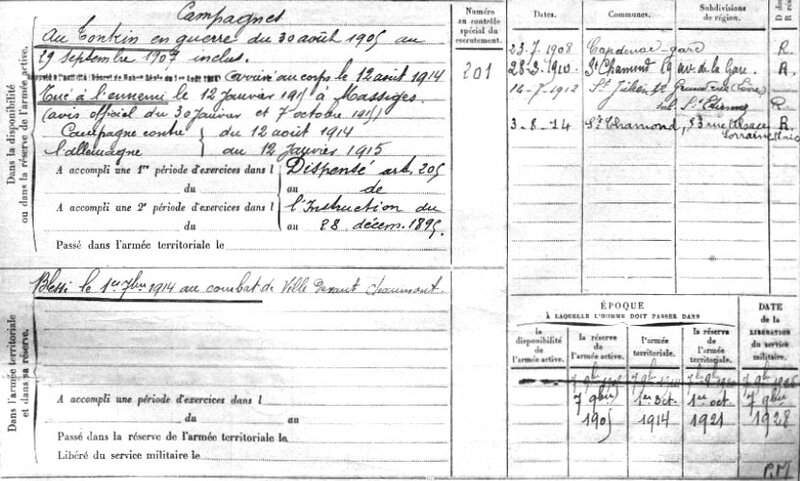 Campagnes
Au Tonkin en guerre du 30 août 1905 au
29 septembre 1907 inclus.
Arrivé au corps le 12 août 1914
Tué à l'ennemi le 12 Janvier 1915 à Massiges
(avis officiel du 30 Janvier et 7 octobre 1915)
Campagne contre { du 12 août 1914
l'allemagne { au 12 Janvier 1915
A accompli une 1re période d'exercices dans l Dispensé art. 205
du au de
A accompli une 2e période d'exercices dans l l'Instruction du
du au 28 décem. 1895.
Passé dans l'armée territoriale le
Dans la disponibilité
ou dans la réserve de l'armée active.
Blessé le 1er 7bre 1914 au combat de Ville Devant Chaumont.
A accompli une période d'exercices dans l
du au
Passé dans la réserve de l'armée territoriale le
Libéré du service militaire le
Dans l'armée territoriale
et dans sa réserve.
Numéro
au contrôle
spécial du
recrutement.
201
Dates. Communes. Subdivisions
de région. D
de
R
23-7-1908 Capdenac-gare R.
28-3-1910 St Chamond 19 av. de la Gare. R.
14-7-1912 St Grand rue (Loire)
St Etienne R.
3-8-14 St Chamond, 53 rue Alsace R.
Lorraine
ÉPOQUE
À LAQUELLE L'HOMME DOIT PASSER DANS
la
disponibilité
de
l'armée active.
la réserve
de
l'armée active.
l'armée
territoriale.
la réserve
de l'armée
territoriale.
DATE
de la
LIBÉRATION
du service
militaire.
7 9bre 1er Oct. 1er oct. 7 9bre
1905 1914 1921 1928